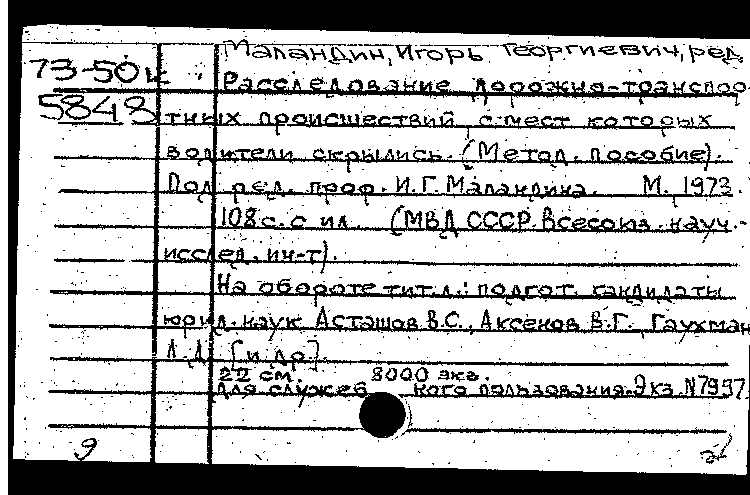 Маландин, Игорь Георгиевич, ред.
73-50к Расследование дорожно-транспор-
5848 тных происшествий, с мест которых
водители скрылись. (Метод. пособие).
Под ред. проф. И.Г. Маландина. М., 1973.
108 с. с ил. (МВД СССР. Всесоюз. науч.-
исслед. ин-т).
На обороте тит. л.: подгот. кандидаты
юрид. наук Асташов В.С., Аксенов В.Г., Гаухман
Л.Д. [и др.].
22 см. 8000 экз.
Для служеб кого пользования. Экз. N7997
9